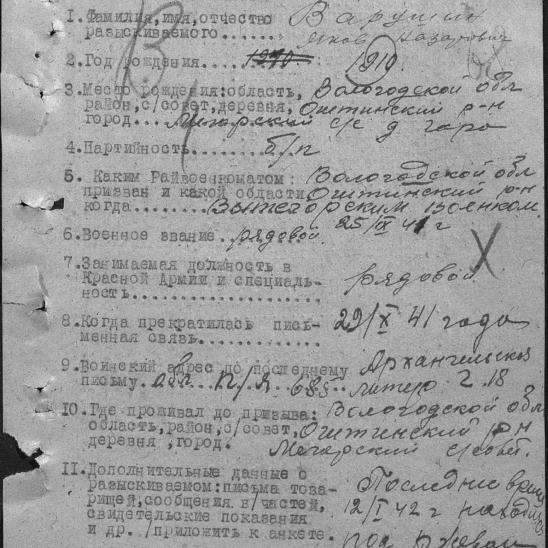 1. Фамилия, имя, отчество Варушин
разыскиваемого....... Яков Назарович
2. Год рождения..... 1910
3. Место рождения: область, Вологодской обл
район, с/совет, деревня, Оштинский р-н
город.... с/с д гора
4. Партийность........ б/п
5. Каким Райвоенкоматом: Вологодской обл
призван и какой области Оштинский р-н
когда........ Вытегорским военком.
25/IX 41 г
6. Военное звание. рядовой.
7. Занимаемая должность в
Красной Армии и специаль- рядовой
ность....................
8. Когда прекратилась пись- 29/X 41 года
менная связь.............
9. Воинский адрес по последнему Архангельская
письму. обл. п/я. 685 литер 2.18
10. Где проживал до призыва: Вологодской обл
область, район, с/совет, Оштинский р-н
деревня, город. с/совет.
11. Дополнительные данные о
разыскиваемом: письма това- Последнее время
рищей, сообщения в/частей, 12/I 42 г находился
свидетельские показания
и др. /приложить к анкете. под Ржевом